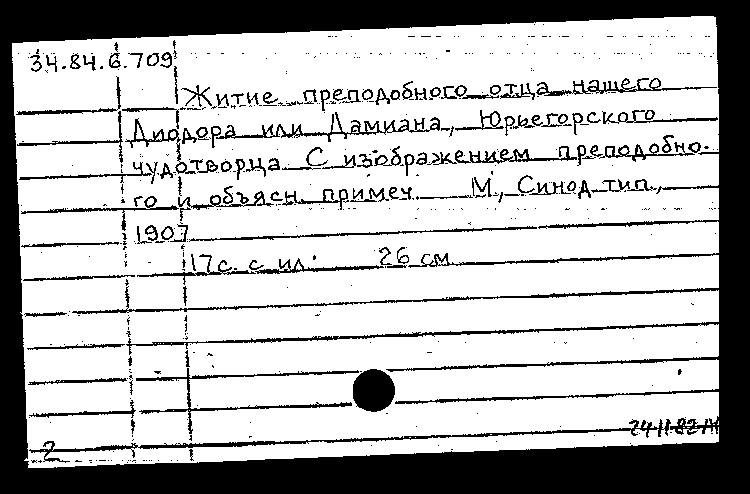 34.84.6.709
Житие преподобного отца нашего
Диодора или Дамиана, Юрьегорского
чудотворца. С изображением преподобно-
го и объясн. примеч. М., Синод. тип.,
1907
17 с. с ил. 26 см
24 11.82
2